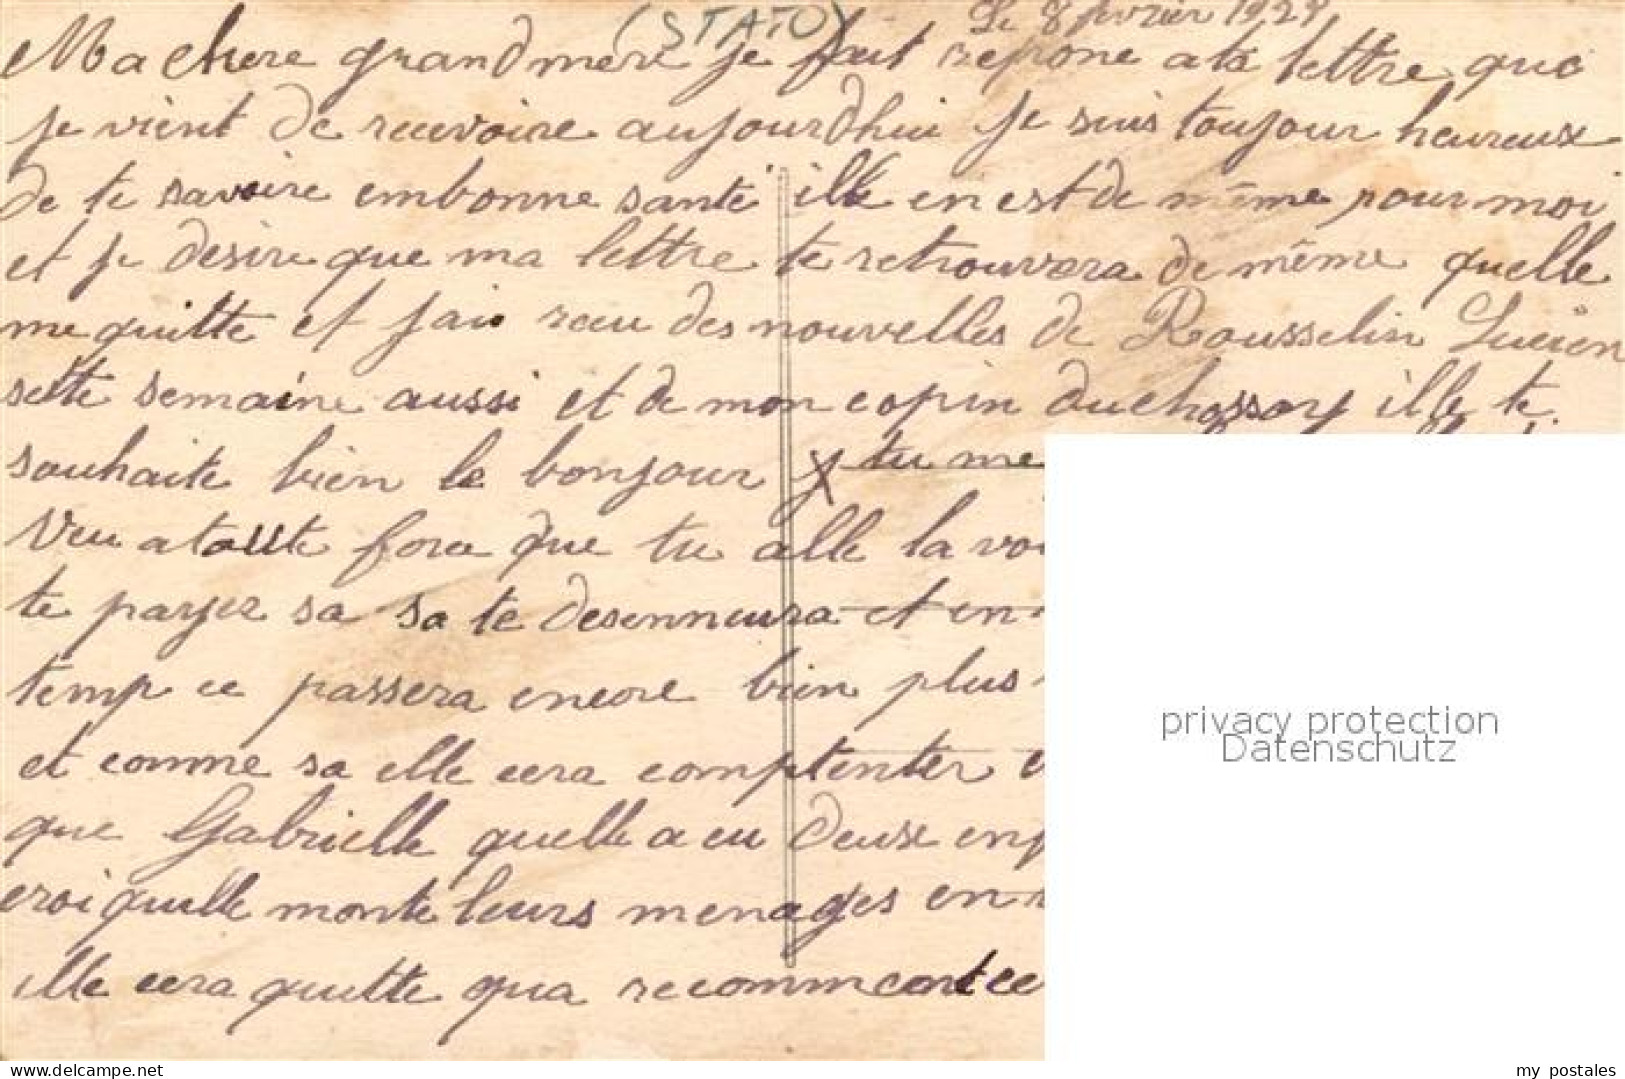 (STATO) Le 8 fevrier 1928
Ma chere grand mere je fait repone a ta lettre que
je vient de recevoire aujourdhui je suis toujour heureux
de te savoire embonne santé ille en est de même pour moi
et je desire que ma lettre te retrouvera de même quelle
me quitte et jai recu des nouvelles de Rousselin Lucien
sette semaine aussi et de mon copin duchossoy ille te
souhaite bien le bonjour j tu me
veu a toute force que tu alle la voi
te payer sa sa te desenneuira et en
temp ce passera encore bien plus
et comme sa elle cera comptenter
que Gabrielle quelle a eu deux enf
croi quelle monte leurs menages en
ille cera quitte qua recommencer
privacy protection
Datenschutz
www.delcampe.net
my_postales